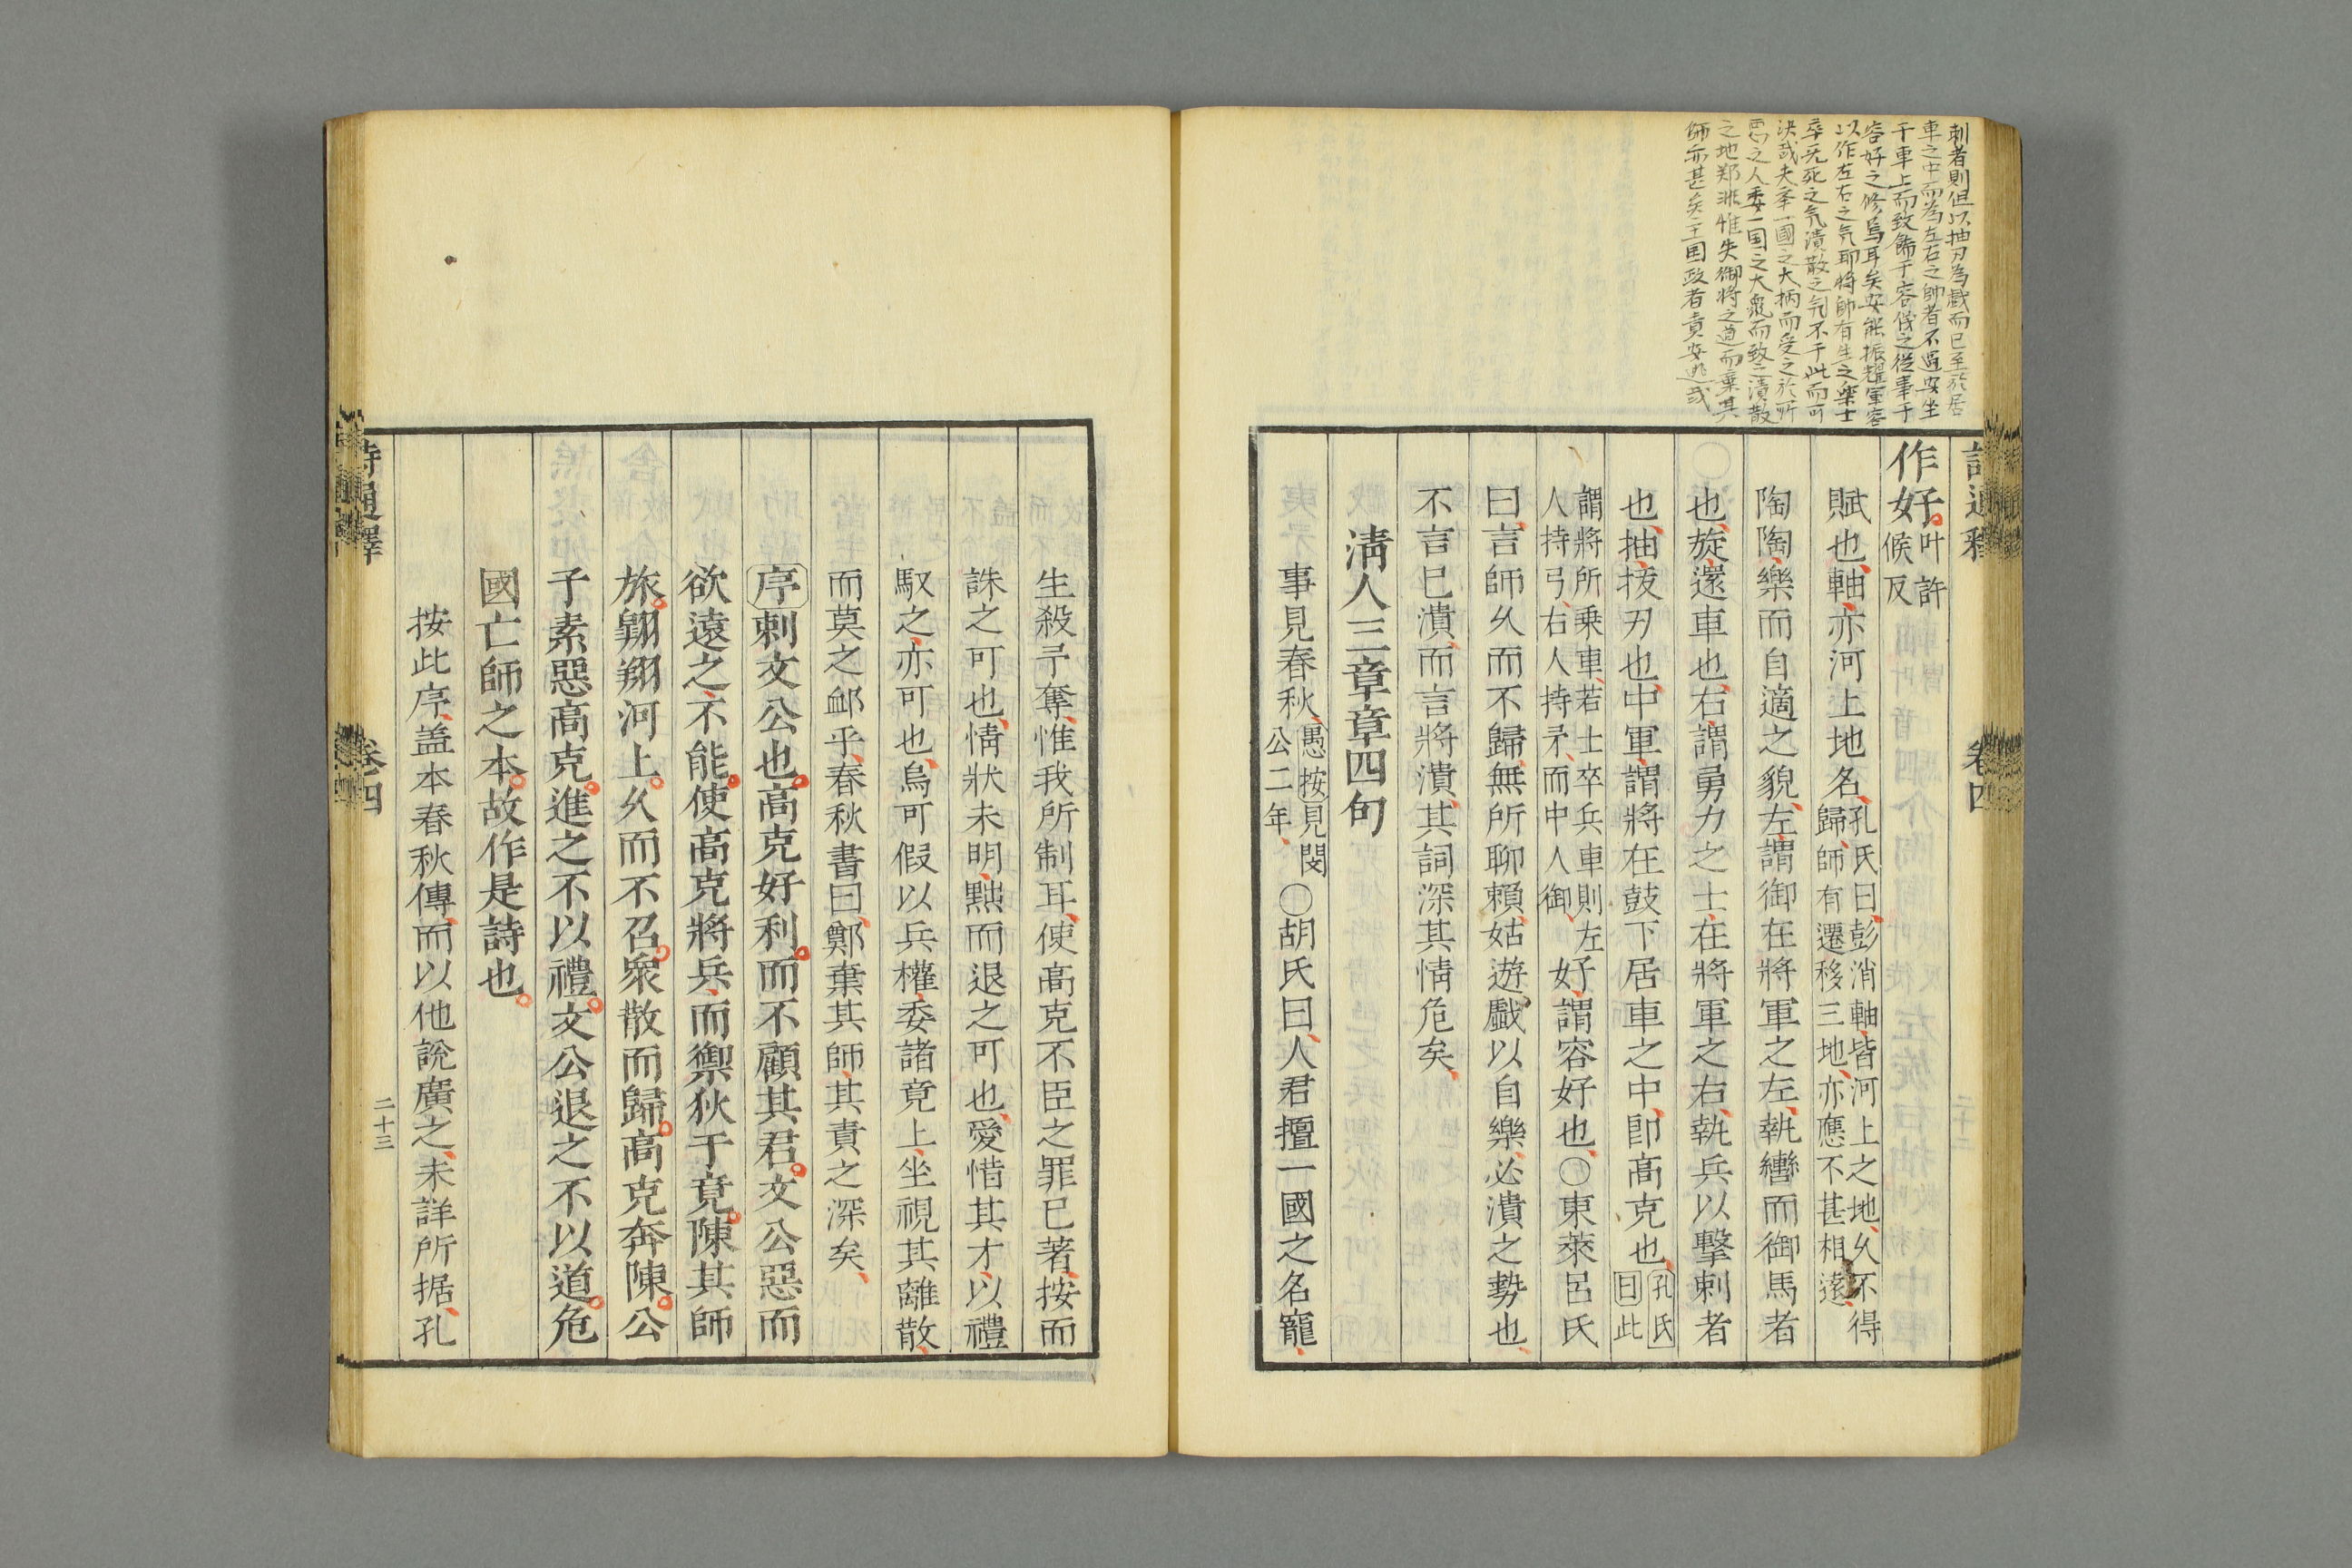 刺者則但以抽刀為戲而已至於居
車之中而為左右之帥者不過安坐
于車上而致飾于容儀之從事于
容好之修焉耳矣安能振耀軍容
以作左右之気耶將帥有生之樂士
卒无死之気潰散之気不于此而可
決哉夫率一國之大柄而受之於所
惡之人委一国之大衆而致之潰散
之地郑非惟失御將之道而棄其
師亦甚矣主国政者責安逃哉
詩通釋 卷四
作好叶許
候反
賦也軸亦河上地名孔氏曰彭消軸皆河上之地久不得
歸師有遷移三地亦應不甚相遠
陶陶樂而自適之貌左謂御在將軍之左執轡而御馬者
也旋還車也右謂勇力之士在將軍之右執兵以擊刺者
也抽抜刃也中軍謂將在鼓下居車之中卽高克也孔氏
曰此
謂將所乗車若士卒兵車則左
人持弓右人持矛而中人御
好謂容好也〇東萊呂氏
曰言師久而不歸無所聊賴姑遊戲以自樂必潰之勢也
不言已潰而言將潰其詞深其情危矣
淸人三章章四句
事見春秋愚按見閔
公二年
〇胡氏曰人君擅一國之名寵
生殺予奪惟我所制耳使高克不臣之罪已著按而
誅之可也情狀未明黜而退之可也愛惜其才以禮
馭之亦可也烏可假以兵權委諸竟上坐視其離散
而莫之䘏乎春秋書曰鄭棄其師其責之深矣
序刺文公也高克好利而不顧其君文公惡而
欲遠之不能使高克將兵而禦狄于竟陳其師
旅翺翔河上久而不召衆散而歸高克奔陳公
子素惡高克進之不以禮文公退之不以道危
國亡師之本故作是詩也
按此序盖本春秋傳而以他說廣之未詳所据孔
詩通釋 卷四 二十三